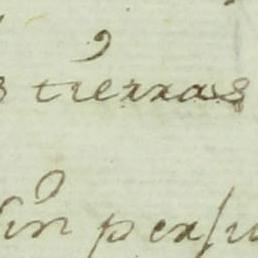 tierras
sin per